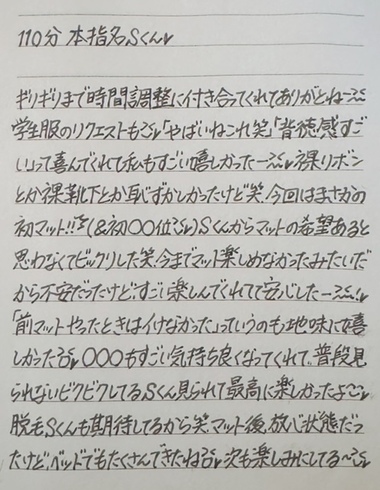 110分 本指名Sくん♥
ギリギリまで時間調整に付き合ってくれてありがとね〜
学生服のリクエストも♥「やばいねこれ笑」「背徳感すご
い」って喜んでくれて私もすごい嬉しかったー♥裸リボン
とか裸靴下とか恥ずかしかったけど笑、今回はまさかの
初マット!!(&初〇〇位)Sくんからマットの希望あると
思わなくてビックリした笑、今までマット楽しめなかったみたいだ
から不安だったけど、すごい楽しんでくれてて安心したー
「前マットやったときはイけなかった」っていうのも地味に嬉
しかった♥〇〇〇もすごい気持ち良くなってくれて、普段見
られないビクビクしてるSくん見られて最高に楽しかったよ〜
脱毛Sくんも期待してるから笑、マット後、放心状態だっ
たけど、ベッドでもたくさんできたね♥次も楽しみにしてる〜♥